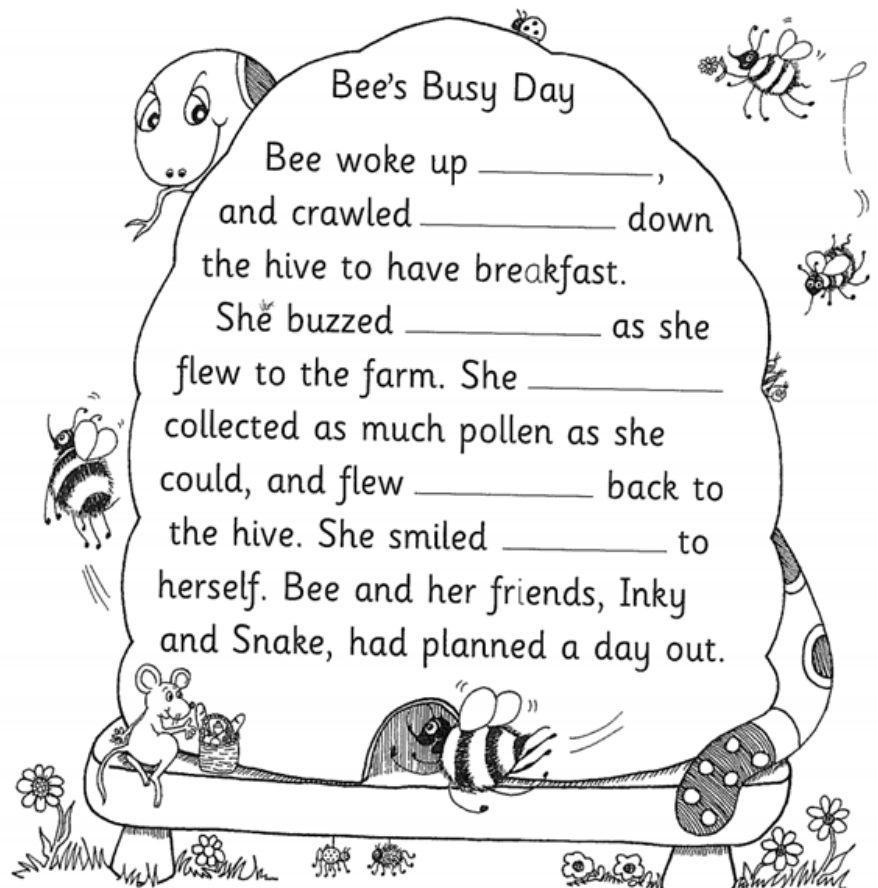 Bee's Busy Day
Bee woke up ____________,
and crawled ____________ down
the hive to have breakfast.
She buzzed ____________ as she
flew to the farm. She ____________
collected as much pollen as she
could, and flew ____________ back to
the hive. She smiled ____________ to
herself. Bee and her friends, Inky
and Snake, had planned a day out.